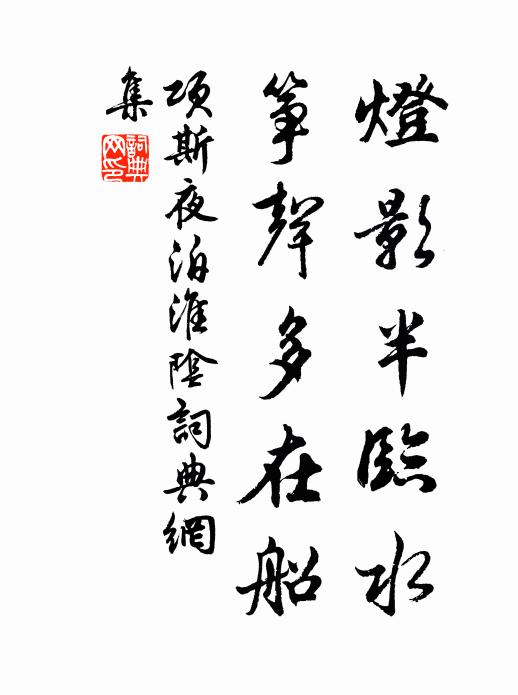 燈影半臨水
箏聲多在船
項斯夜泊淮陰詞典網
集
詞典
网印